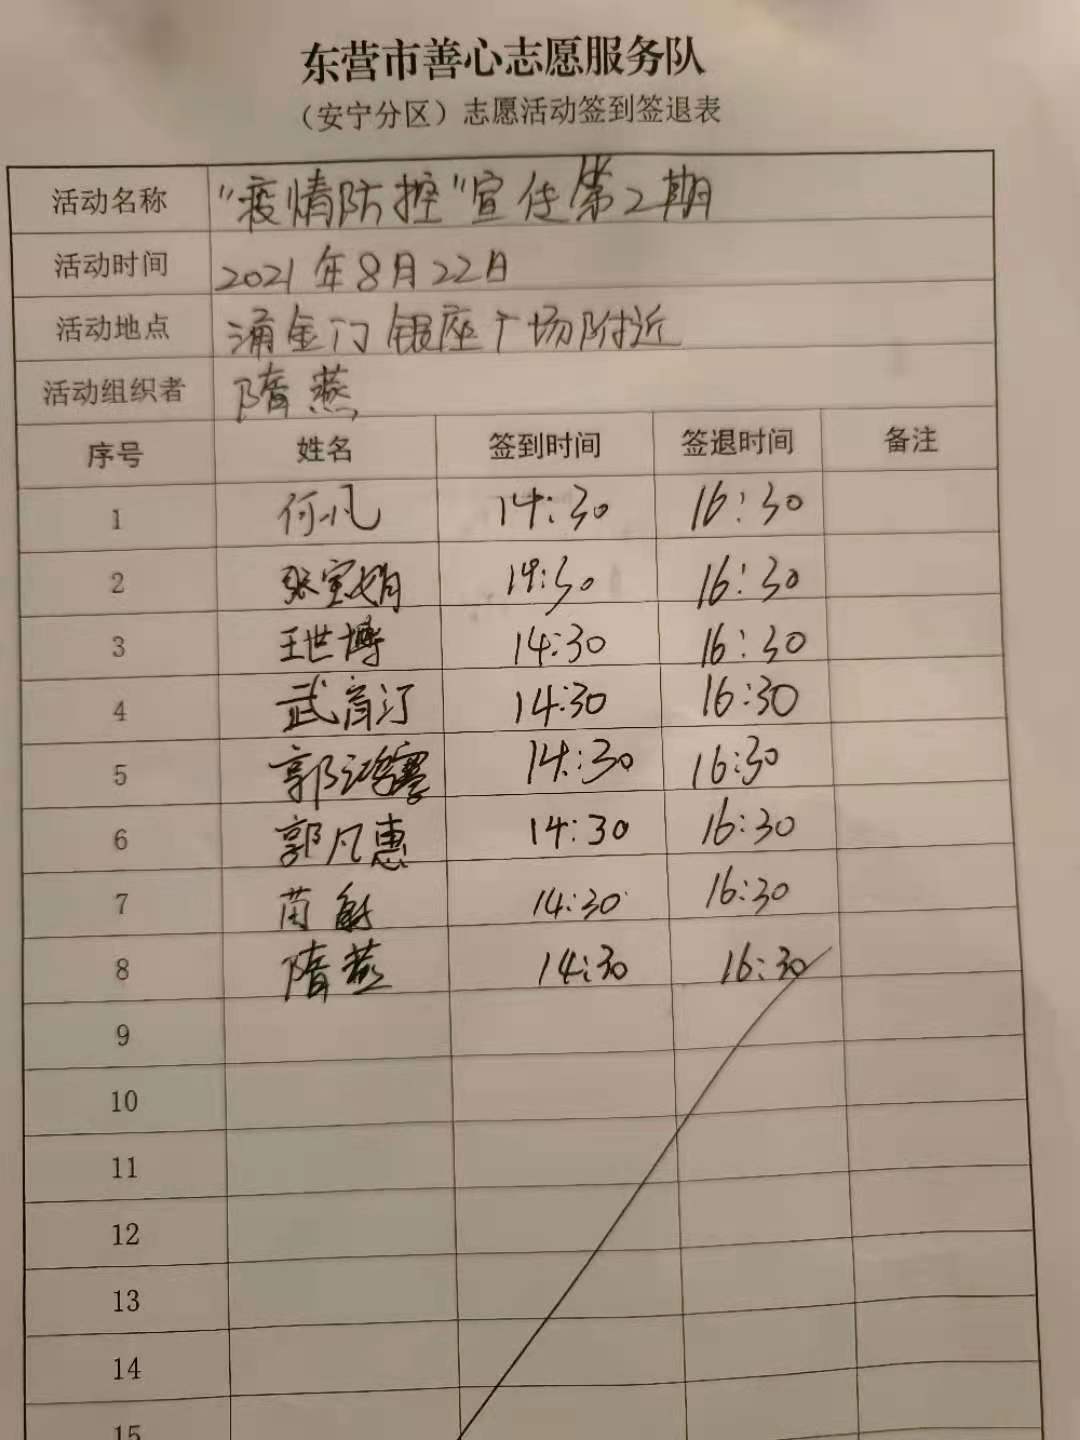 东营市善心志愿服务队
（安宁分区）志愿活动签到签退表
活动名称 "疫情防控"宣传第2期
活动时间 2021年8月22日
活动地点 涌金门银座广场附近
活动组织者 隋燕
序号 姓名 签到时间 签退时间 备注
1 何凡 14:30 16:30
2 张宝娟 14:30 16:30
3 王世博 14:30 16:30
4 武育汀 14:30 16:30
5 郭 14:30 16:30
6 郭凡惠 14:30 16:30
7 苗 14:30 16:30
8 隋燕 14:30 16:30
9
10
11
12
13
14
15